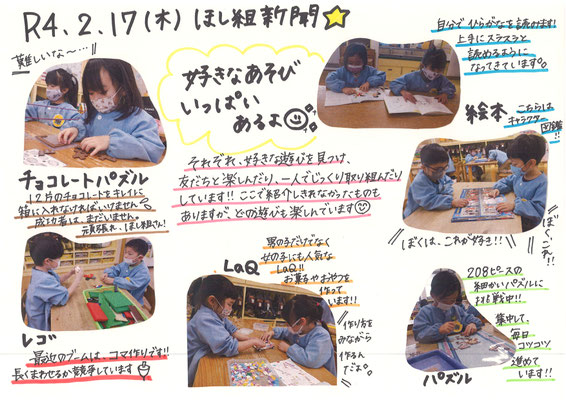 R4.2.17(木) ほし組新聞
難しいな〜…
好きなあそび
いっぱい
あるよ
自分でひらがなを読みます!
上手にスラスラと
読めるように
なってきています。
絵本
こちらは
キャラクター
図鑑!!
チョコレートパズル
12片のチョコレートをキレイに
箱に入れなければいけません
成功者は、まだいません。
元気張れ、ほし組さん!
それぞれ、好きな遊びを見つけ、
友だちと楽しんだり、一人でじっくり取り組んだり
しています!!ここで紹介しきれなかったものも
ありますが、どの遊びも楽しんでいます
ぼくは、これが好き!!
ぼく、これ!!
レゴ
最近のブームは、コマ作りです!!
長くまわせるか競争しています
LaQ
男の子だけでなく
女の子にも人気な
LaQ!!
お菓子やおやつを
作って
います!!
作り方を
みながら
作るん
だよ。
208ピースの
細かいパズルに
挑戦中!!
集中して、
毎日
コツコツ
進めて
います!!
パズル